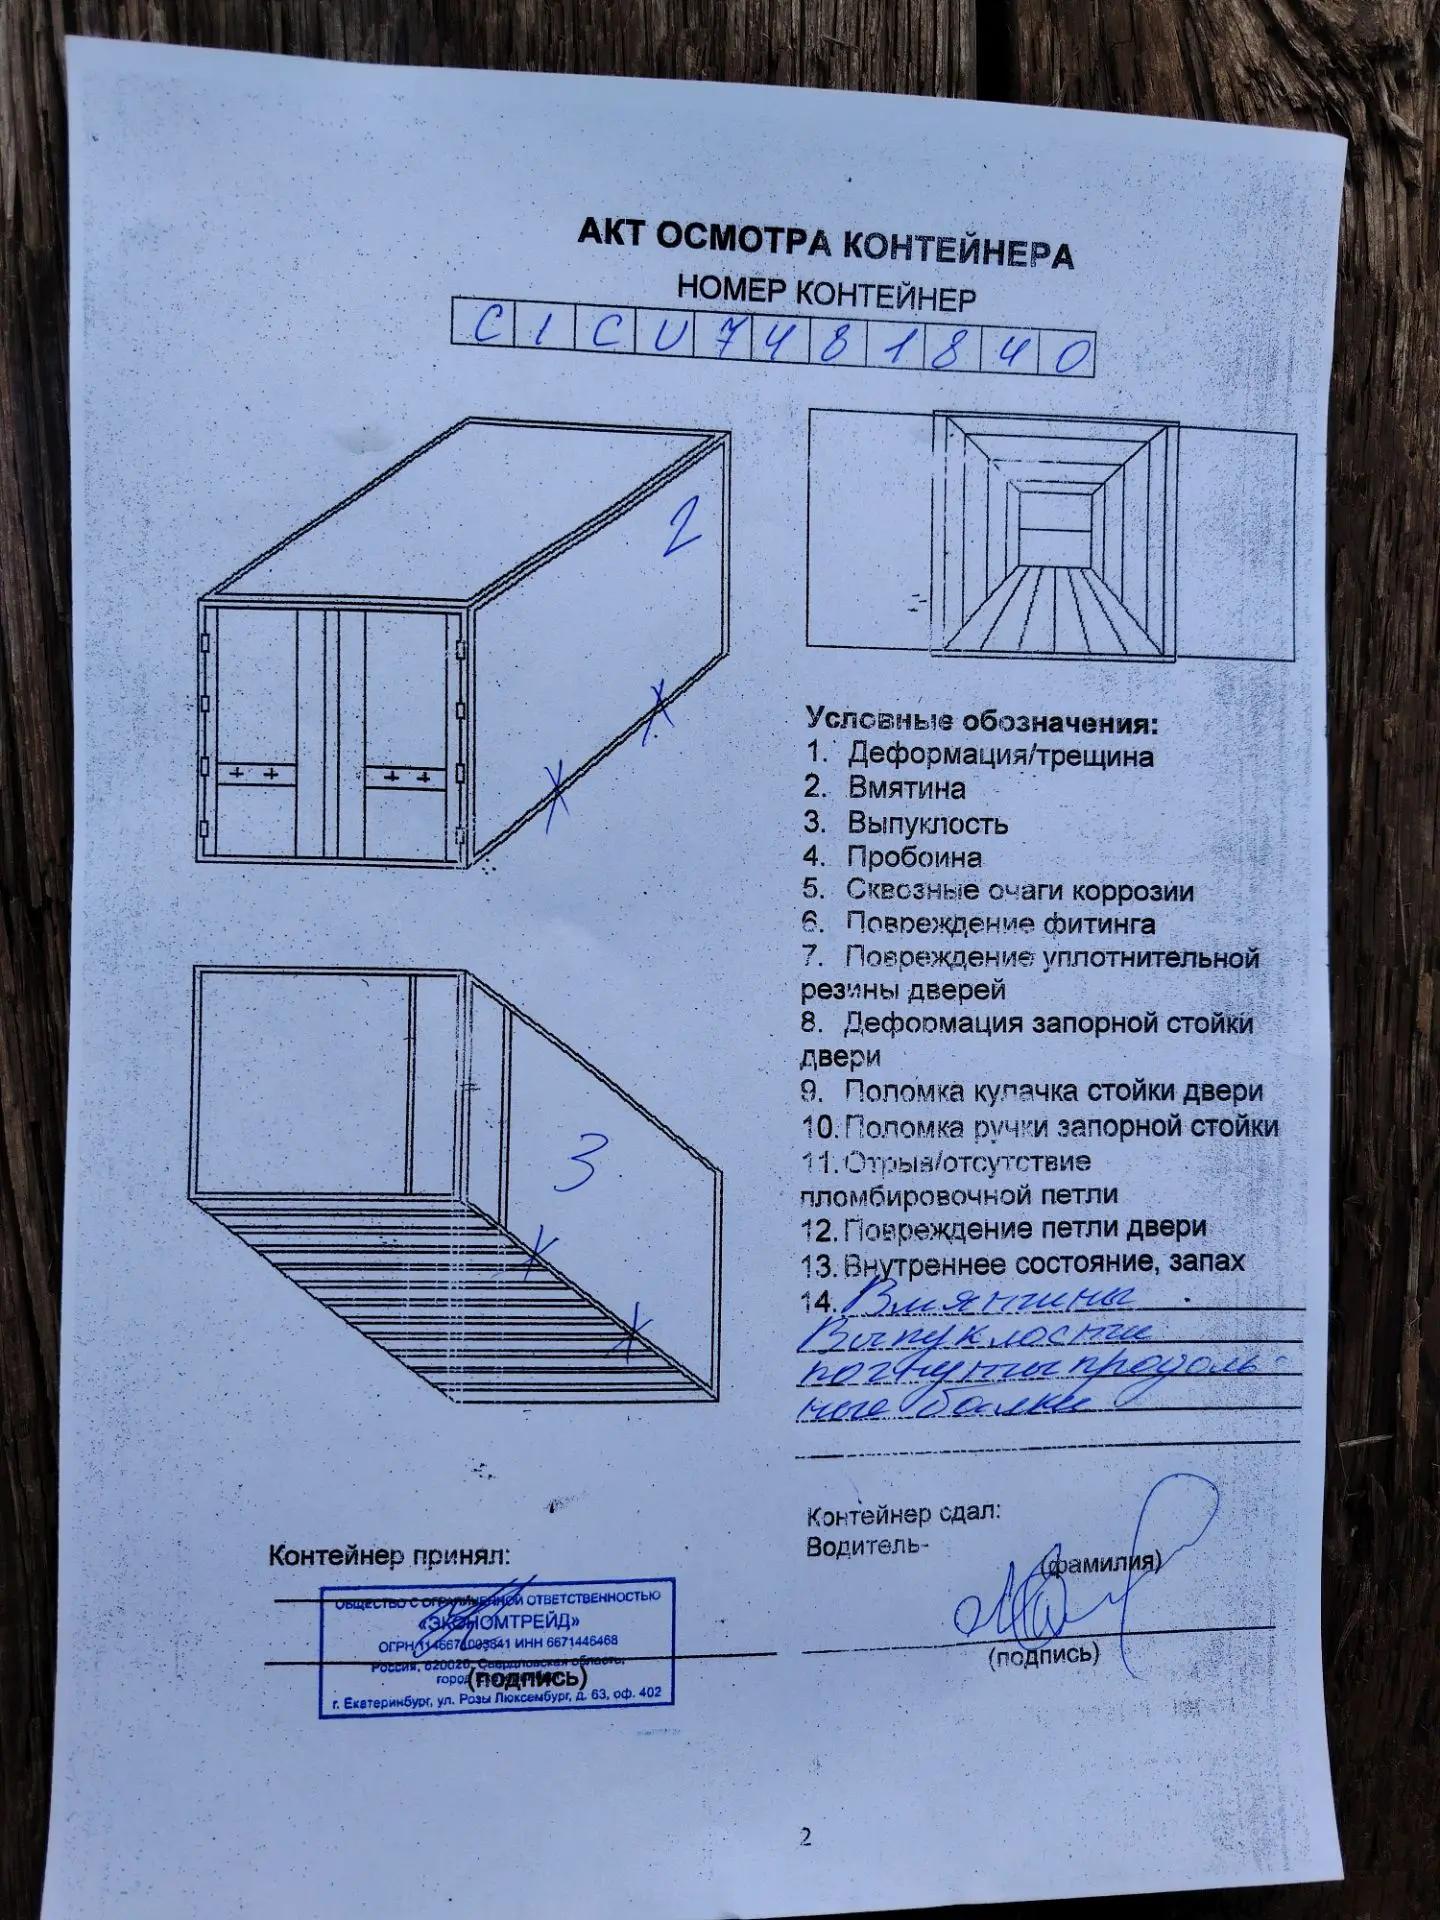 АКТ ОСМОТРА КОНТЕЙНЕРА
НОМЕР КОНТЕЙНЕР
C I C U 7 4 8 1 8 4 0
2
Условные обозначения:
1. Деформация/трещина
2. Вмятина
3. Выпуклость
4. Пробоина
5. Сквозные очаги коррозии
6. Повреждение фитинга
7. Повреждение уплотнительной
резины дверей
8. Деформация запорной стойки
двери
9. Поломка кулачка стойки двери
10. Поломка ручки запорной стойки
11. Отрыв/отсутствие
пломбировочной петли
12. Повреждение петли двери
13. Внутреннее состояние, запах
14. Вмятины
Выпуклости
погнуты продоль-
ные балки
3
Контейнер принял:
ОБЩЕСТВО С ОГРАНИЧЕННОЙ ОТВЕТСТВЕННОСТЬЮ
«ЭКОНОМТРЕЙД»
ОГРН ИНН 6671446468
Россия, 620026, Свердловская область,
город
(подпись)
г. Екатеринбург, ул. Розы Люксембург, д. 63, оф. 402
Контейнер сдал:
Водитель-
(фамилия)
(подпись)
2